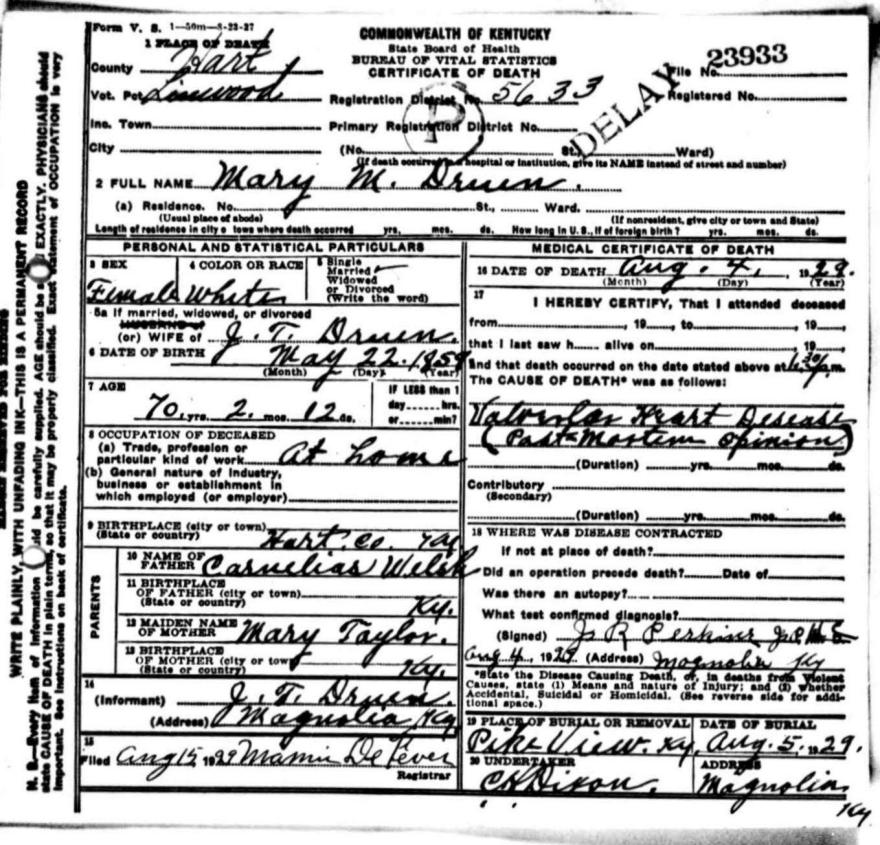 Form V. S. 1—50m—8-23-27
COMMONWEALTH OF KENTUCKY
State Board of Health
BUREAU OF VITAL STATISTICS
CERTIFICATE OF DEATH
1 PLACE OF DEATH
County Hart
File No. 23933
DELAY
Vot. Pct Linwood
Registration District No. 5633
Registered No.
P
Inc. Town
Primary Registration District No.
City
(No. St. Ward)
(If death occurred in a hospital or institution, give its NAME instead of street and number)
2 FULL NAME Mary M. Druen.
(a) Residence. No. St., Ward.
(Usual place of abode) (If nonresident, give city or town and State)
Length of residence in city or town where death occurred yrs. mos. ds. How long in U. S., if of foreign birth? yrs. mos. ds.
PERSONAL AND STATISTICAL PARTICULARS
3 SEX
Female
4 COLOR OR RACE
White
5 Single
Married
Widowed
or Divorced
(Write the word)
5a If married, widowed, or divorced
HUSBAND of
(or) WIFE of J. T. Druen.
6 DATE OF BIRTH May 22. 1859
(Month) (Day) (Year)
7 AGE
70 yrs. 2. mos. 12 ds.
IF LESS than 1
day hrs.
or min?
8 OCCUPATION OF DECEASED
(a) Trade, profession or
particular kind of work At home
(b) General nature of industry,
business or establishment in
which employed (or employer)
9 BIRTHPLACE (city or town)
(State or country) Hart. Co. Ky
PARENTS
10 NAME OF
FATHER Cornelias Welsh
11 BIRTHPLACE
OF FATHER (city or town)
(State or country) Ky.
12 MAIDEN NAME
OF MOTHER Mary Taylor.
13 BIRTHPLACE
OF MOTHER (city or town)
(State or country) Ky.
14
(Informant) J. T. Druen
(Address) Magnolia Ky
15
Filed Aug 15, 1929 Mamie De Fever
Registrar
MEDICAL CERTIFICATE OF DEATH
16 DATE OF DEATH Aug. 4, 1929.
(Month) (Day) (Year)
17
I HEREBY CERTIFY, That I attended deceased
from , 19 , to , 19 ,
that I last saw h alive on , 19 ,
and that death occurred on the date stated above at 6:30 a.m.
The CAUSE OF DEATH* was as follows:
Valvular Heart Disease
(Post-Mortem opinion)
(Duration) yrs. mos. ds.
Contributory
(Secondary)
(Duration) yrs. mos. ds.
18 WHERE WAS DISEASE CONTRACTED
If not at place of death?
Did an operation precede death? Date of
Was there an autopsy?
What test confirmed diagnosis?
(Signed) Js R Perkins
Aug 4, 1929 (Address) Magnolia Ky
*State the Disease Causing Death, or, in deaths from Violent
Causes, state (1) Means and nature of Injury; and (2) whether
Accidental, Suicidal or Homicidal. (See reverse side for addi-
tional space.)
19 PLACE OF BURIAL OR REMOVAL
Pike View. Ky.
DATE OF BURIAL
Aug. 5, 1929.
20 UNDERTAKER
C H Dixon.
ADDRESS
Magnolia
Ky
WRITE PLAINLY, WITH UNFADING INK—THIS IS A PERMANENT RECORD
N. B.—Every item of information should be carefully supplied. AGE should be EXACTLY. PHYSICIANS should
state CAUSE OF DEATH in plain terms, so that it may be properly classified. Exact statement of OCCUPATION is very
important. See instructions on back of certificate.